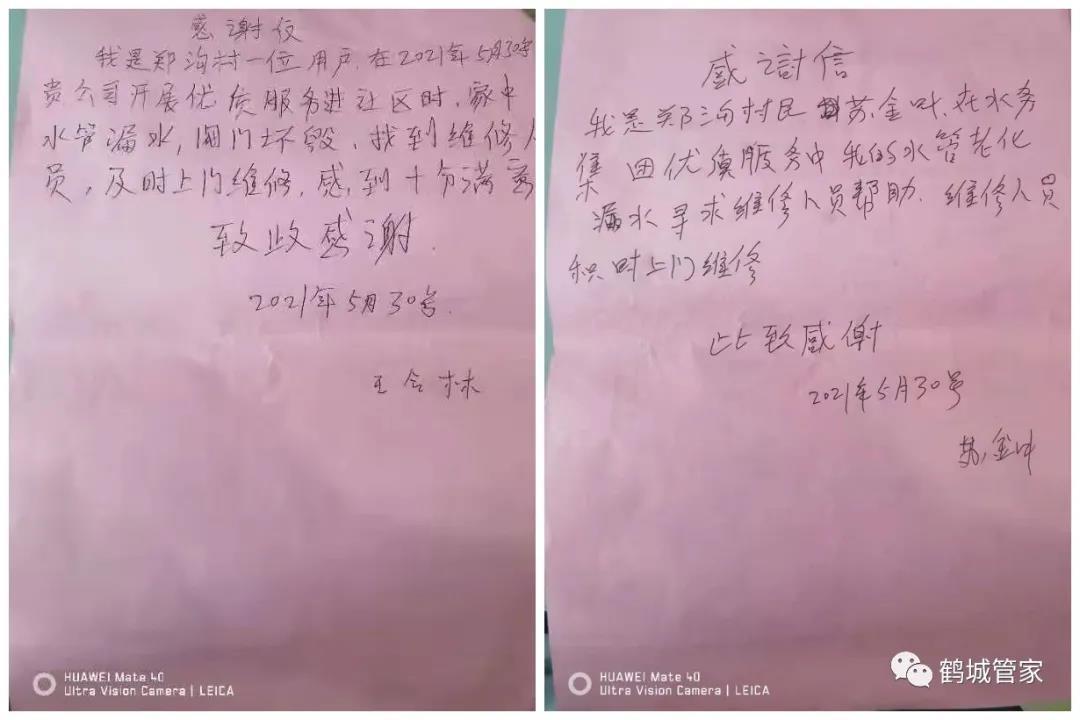 感谢仪
我是郑沟村一位用户,在2021年5月30号
贵公司开展优质服务进社区时,家中
水管漏水,阀门坏毁,找到维修人
员,及时上门维修,感到十分满意
致此感谢.
2021年5月30号.
王合林
HUAWEI Mate 40
Ultra Vision Camera | LEICA
感谢信
我是郑沟村民苏金叶,在水务
集团优质服务中我的水管老化
漏水寻求维修人员帮助.维修人员
积时上门维修
此致感谢
2021年5月30号
苏金叶
HUAWEI Mate 40
Ultra Vision Camera | LEICA
鹤城管家